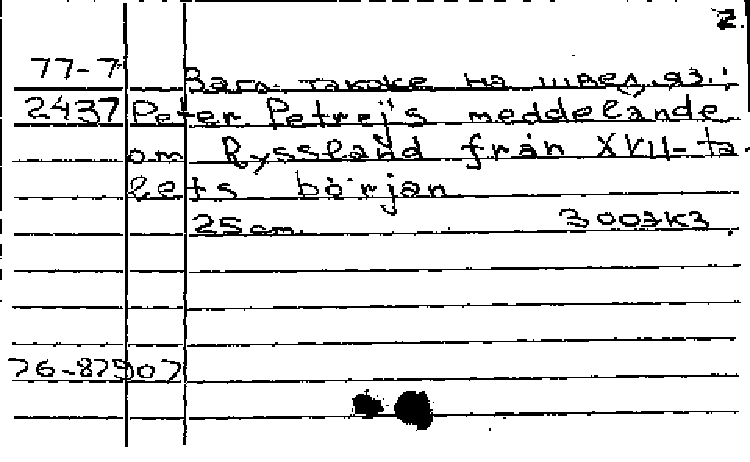 2.
77-7 Загл. также на швед. яз.:
2437 Peter Petrejs meddelande
om Ryssland från XVII-ta-
lets början
25 cm. 3 00экз.
76-87907